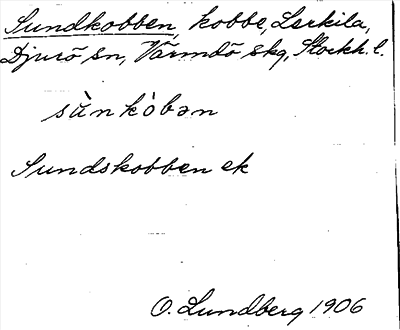 Sundkobben, kobbe, Lerkila,
Djurö sn, Värmdö skg, Stockh. l.
sùnkòbən
Sundskobben ek
O. Lundberg 1906